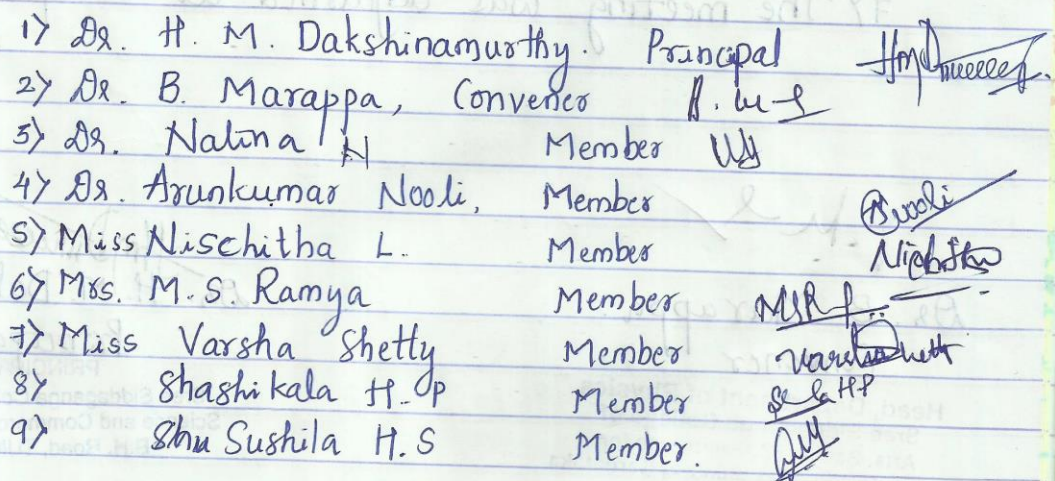 1) Dr. H. M. Dakshinamurthy. Principal
2) Dr. B. Marappa, Convener
3) Dr. Nalina N Member
4) Dr. Arunkumar Nooli, Member
5) Miss Nischitha L. Member
6) Mrs. M. S. Ramya Member
7) Miss Varsha Shetty Member
8) Shashikala H. P Member
9) Sushila H.S Member.